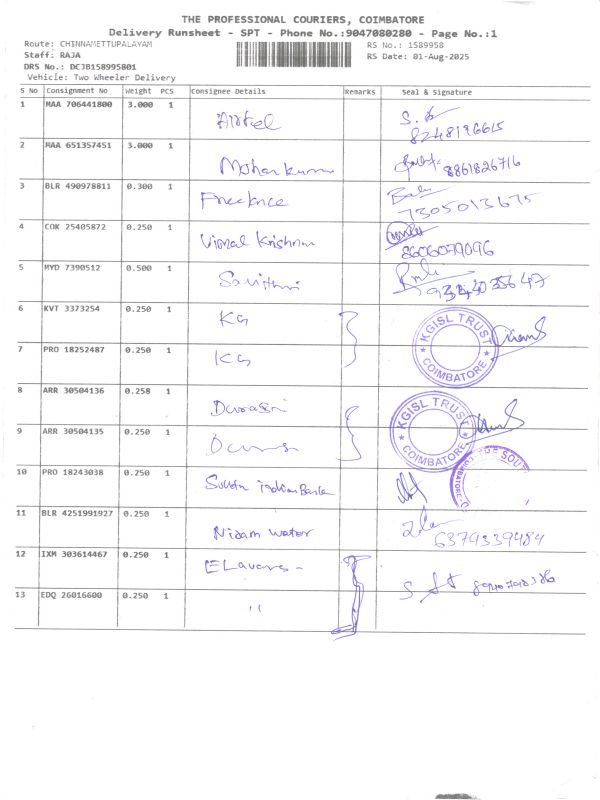 THE PROFESSIONAL COURIERS, COIMBATORE
Delivery Runsheet - SPT - Phone No.:9047080280 - Page No.:1
Route: CHINNAMETTUPALAYAM
RS No.: 1589958
Staff: RAJA
RS Date: 01-Aug-2025
DRS No.: DCJB158995801
Vehicle: Two Wheeler Delivery
S No Consignment No Weight PCS Consignee Details Remarks Seal & Signature
1 MAA 706441800 3.000 1 Airtel 8248196615
2 MAA 651357451 3.000 1 Mohankumar 8861826716
3 BLR 490978811 0.300 1 Freeknce 7305013675
4 COK 25405872 0.250 1 Vimal Krishnan 8606079096
5 MYD 7390512 0.500 1 Savithri
6 KVT 3373254 0.250 1 KG KGISL TRUST COIMBATORE
7 PRO 18252487 0.250 1 KG
8 ARR 30504136 0.258 1 KGISL TRUST COIMBATORE
9 ARR 30504135 0.250 1
10 PRO 18243038 0.250 1 South indian Bank
11 BLR 4251991927 0.250 1 Nidam water 6379339484
12 IXM 303614467 0.250 1
13 EDQ 26016600 0.250 1 "